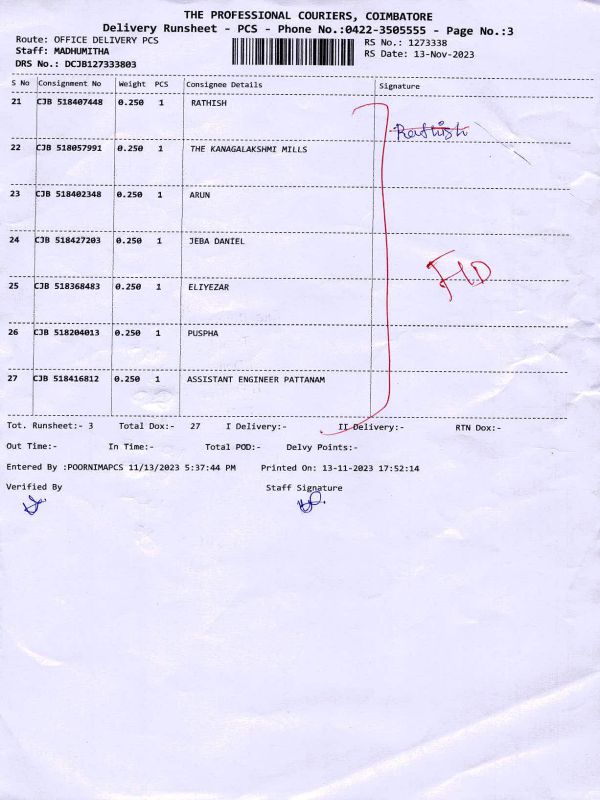 THE PROFESSIONAL COURIERS, COIMBATORE
Delivery Runsheet - PCS - Phone No.:0422-3505555 - Page No.:3
Route: OFFICE DELIVERY PCS RS No.: 1273338
Staff: MADHUMITHA RS Date: 13-Nov-2023
DRS No.: DCJB127333803
S No Consignment No Weight PCS Consignee Details Signature
21 CJB 518407448 0.250 1 RATHISH
Rathish
22 CJB 518057991 0.250 1 THE KANAGALAKSHMI MILLS
23 CJB 518402348 0.250 1 ARUN
24 CJB 518427203 0.250 1 JEBA DANIEL
25 CJB 518368483 0.250 1 ELIYEZAR
26 CJB 518204013 0.250 1 PUSPHA
27 CJB 518416812 0.250 1 ASSISTANT ENGINEER PATTANAM
Tot. Runsheet:- 3 Total Dox:- 27 I Delivery:- II Delivery:- RTN Dox:-
Out Time:- In Time:- Total POD:- Delvy Points:-
Entered By :POORNIMAPCS 11/13/2023 5:37:44 PM Printed On: 13-11-2023 17:52:14
Verified By Staff Signature